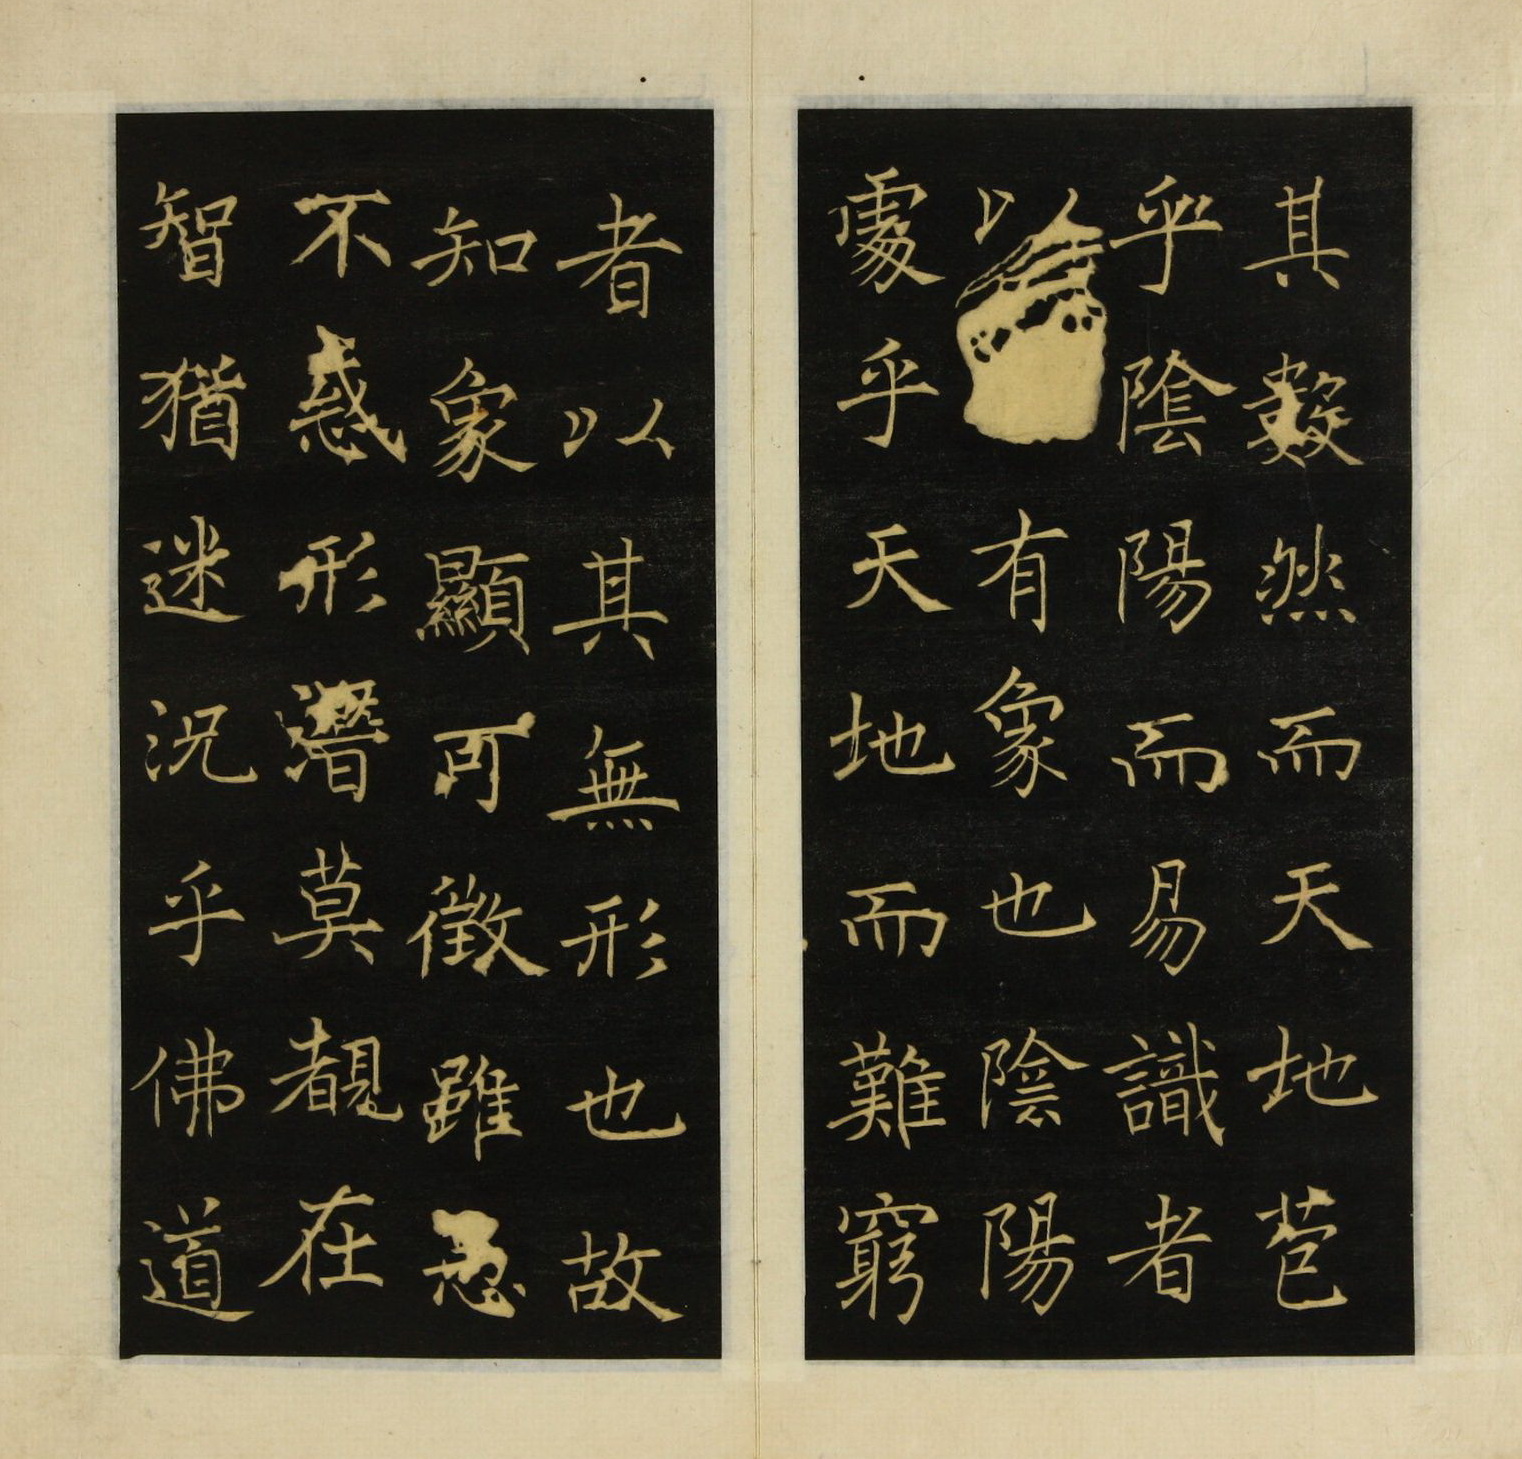 其數然而天地苞
乎陰陽而易識者
以有象也陰陽
處乎天地而難窮
者以其無形也故
知象顯可徵雖愚
不惑形潛莫覩在
智猶迷況乎佛道